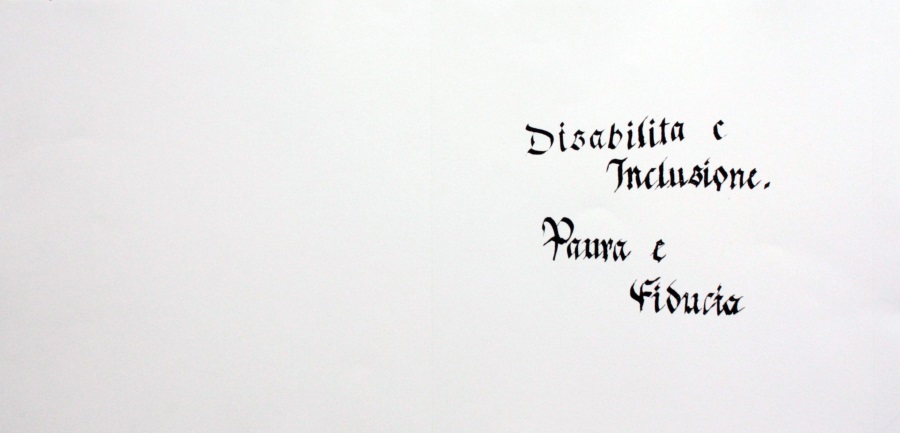 Disabilita e
Inclusione.
Paura e
Fiducia